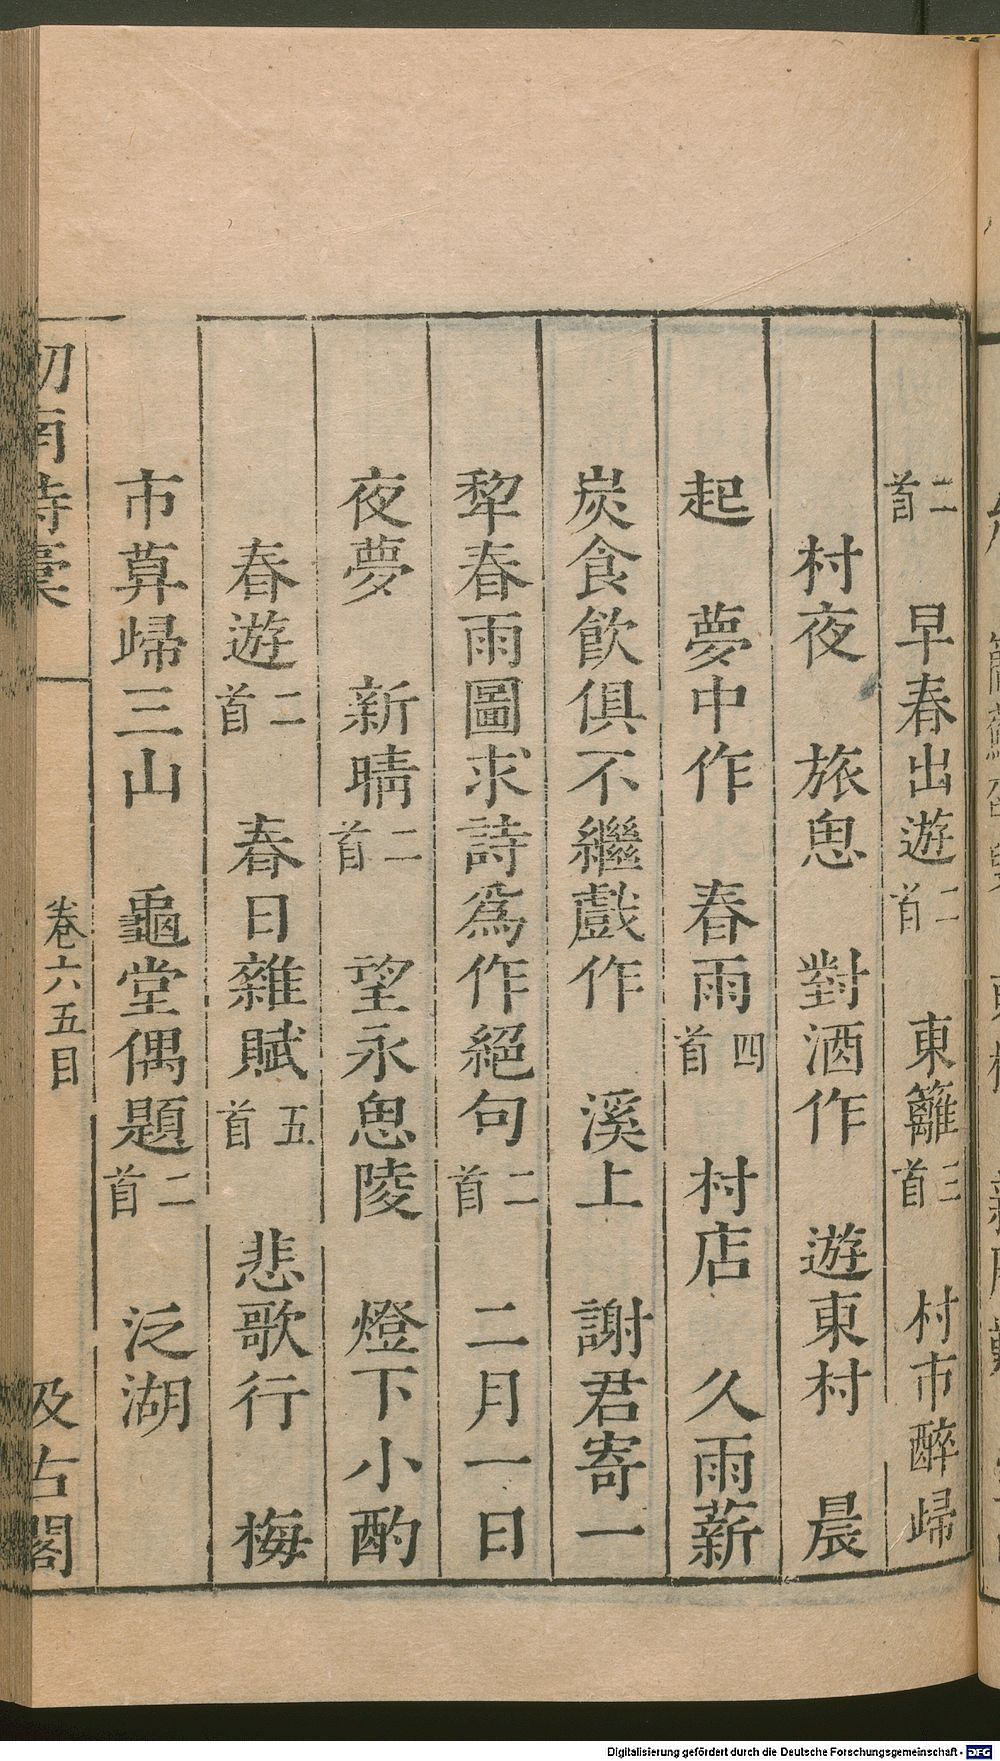 二首　早春出遊二首　東籬三首　村市醉歸
村夜　旅思　對酒作　遊東村　晨
起　夢中作　春雨四首　村店　久雨薪
炭食飲俱不繼戲作　溪上　謝君寄一
犂春雨圖求詩爲作絕句二首　二月一日
夜夢　新晴二首　望永思陵　燈下小酌
春遊二首　春日雜賦五首　悲歌行　梅
市暮歸三山　龜堂偶題二首　泛湖
劒南詩稾　卷六五目　汲古閣
Digitalisierung gefördert durch die Deutsche Forschungsgemeinschaft - DFG